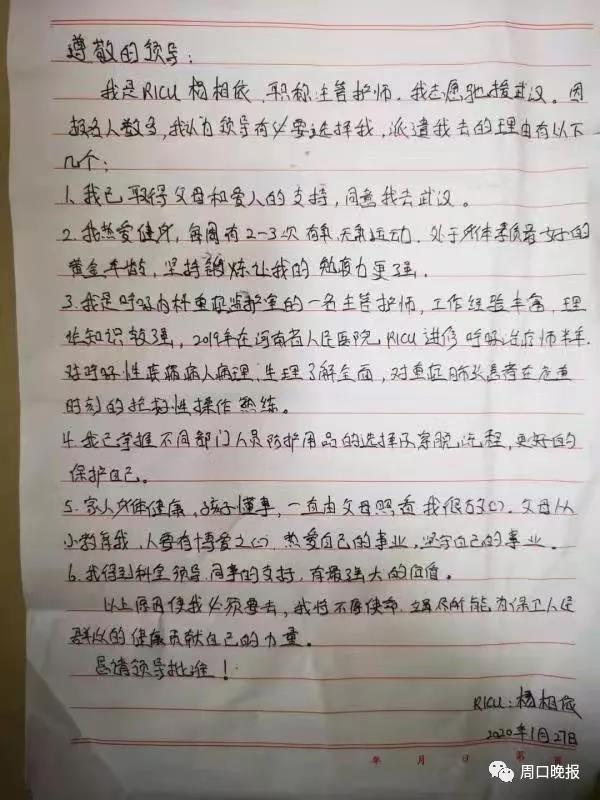 尊敬的领导：
我是RICU 杨相依，职称主管护师。我志愿驰援武汉。因
报名人数多，我认为领导有必要选择我，派遣我去的理由有以下
几个：
1. 我已取得父母和爱人的支持，同意我去武汉。
2. 我热爱健身，每周有2-3次有氧无氧运动。处于身体素质最好的
黄金年龄，坚持锻炼让我的免疫力更强。
3. 我是呼吸内科重症监护室的一名主管护师，工作经验丰富，理
论知识较强，2019年在河南省人民医院RICU进修呼吸治疗师半年.
对呼吸性疾病病人病理、生理了解全面，对重症肺炎患者在危重
时刻的护理性操作熟练。
4. 我已掌握不同部门人员防护用品的选择及穿脱流程，更好的
保护自己。
5. 家人身体健康，孩子懂事，一直由父母照看我很放心。父母从
小教育我，人要有博爱之心，热爱自己的事业，坚守自己的事业。
6. 我得到科室领导、同事的支持，有最强大的后盾。
以上原因使我必须要去，我将不辱使命，竭尽所能为保卫人民
群众的健康贡献自己的力量。
恳请领导批准！
RICU：杨相依
2020年1月27日
年 月 日 第 页
周口晚报